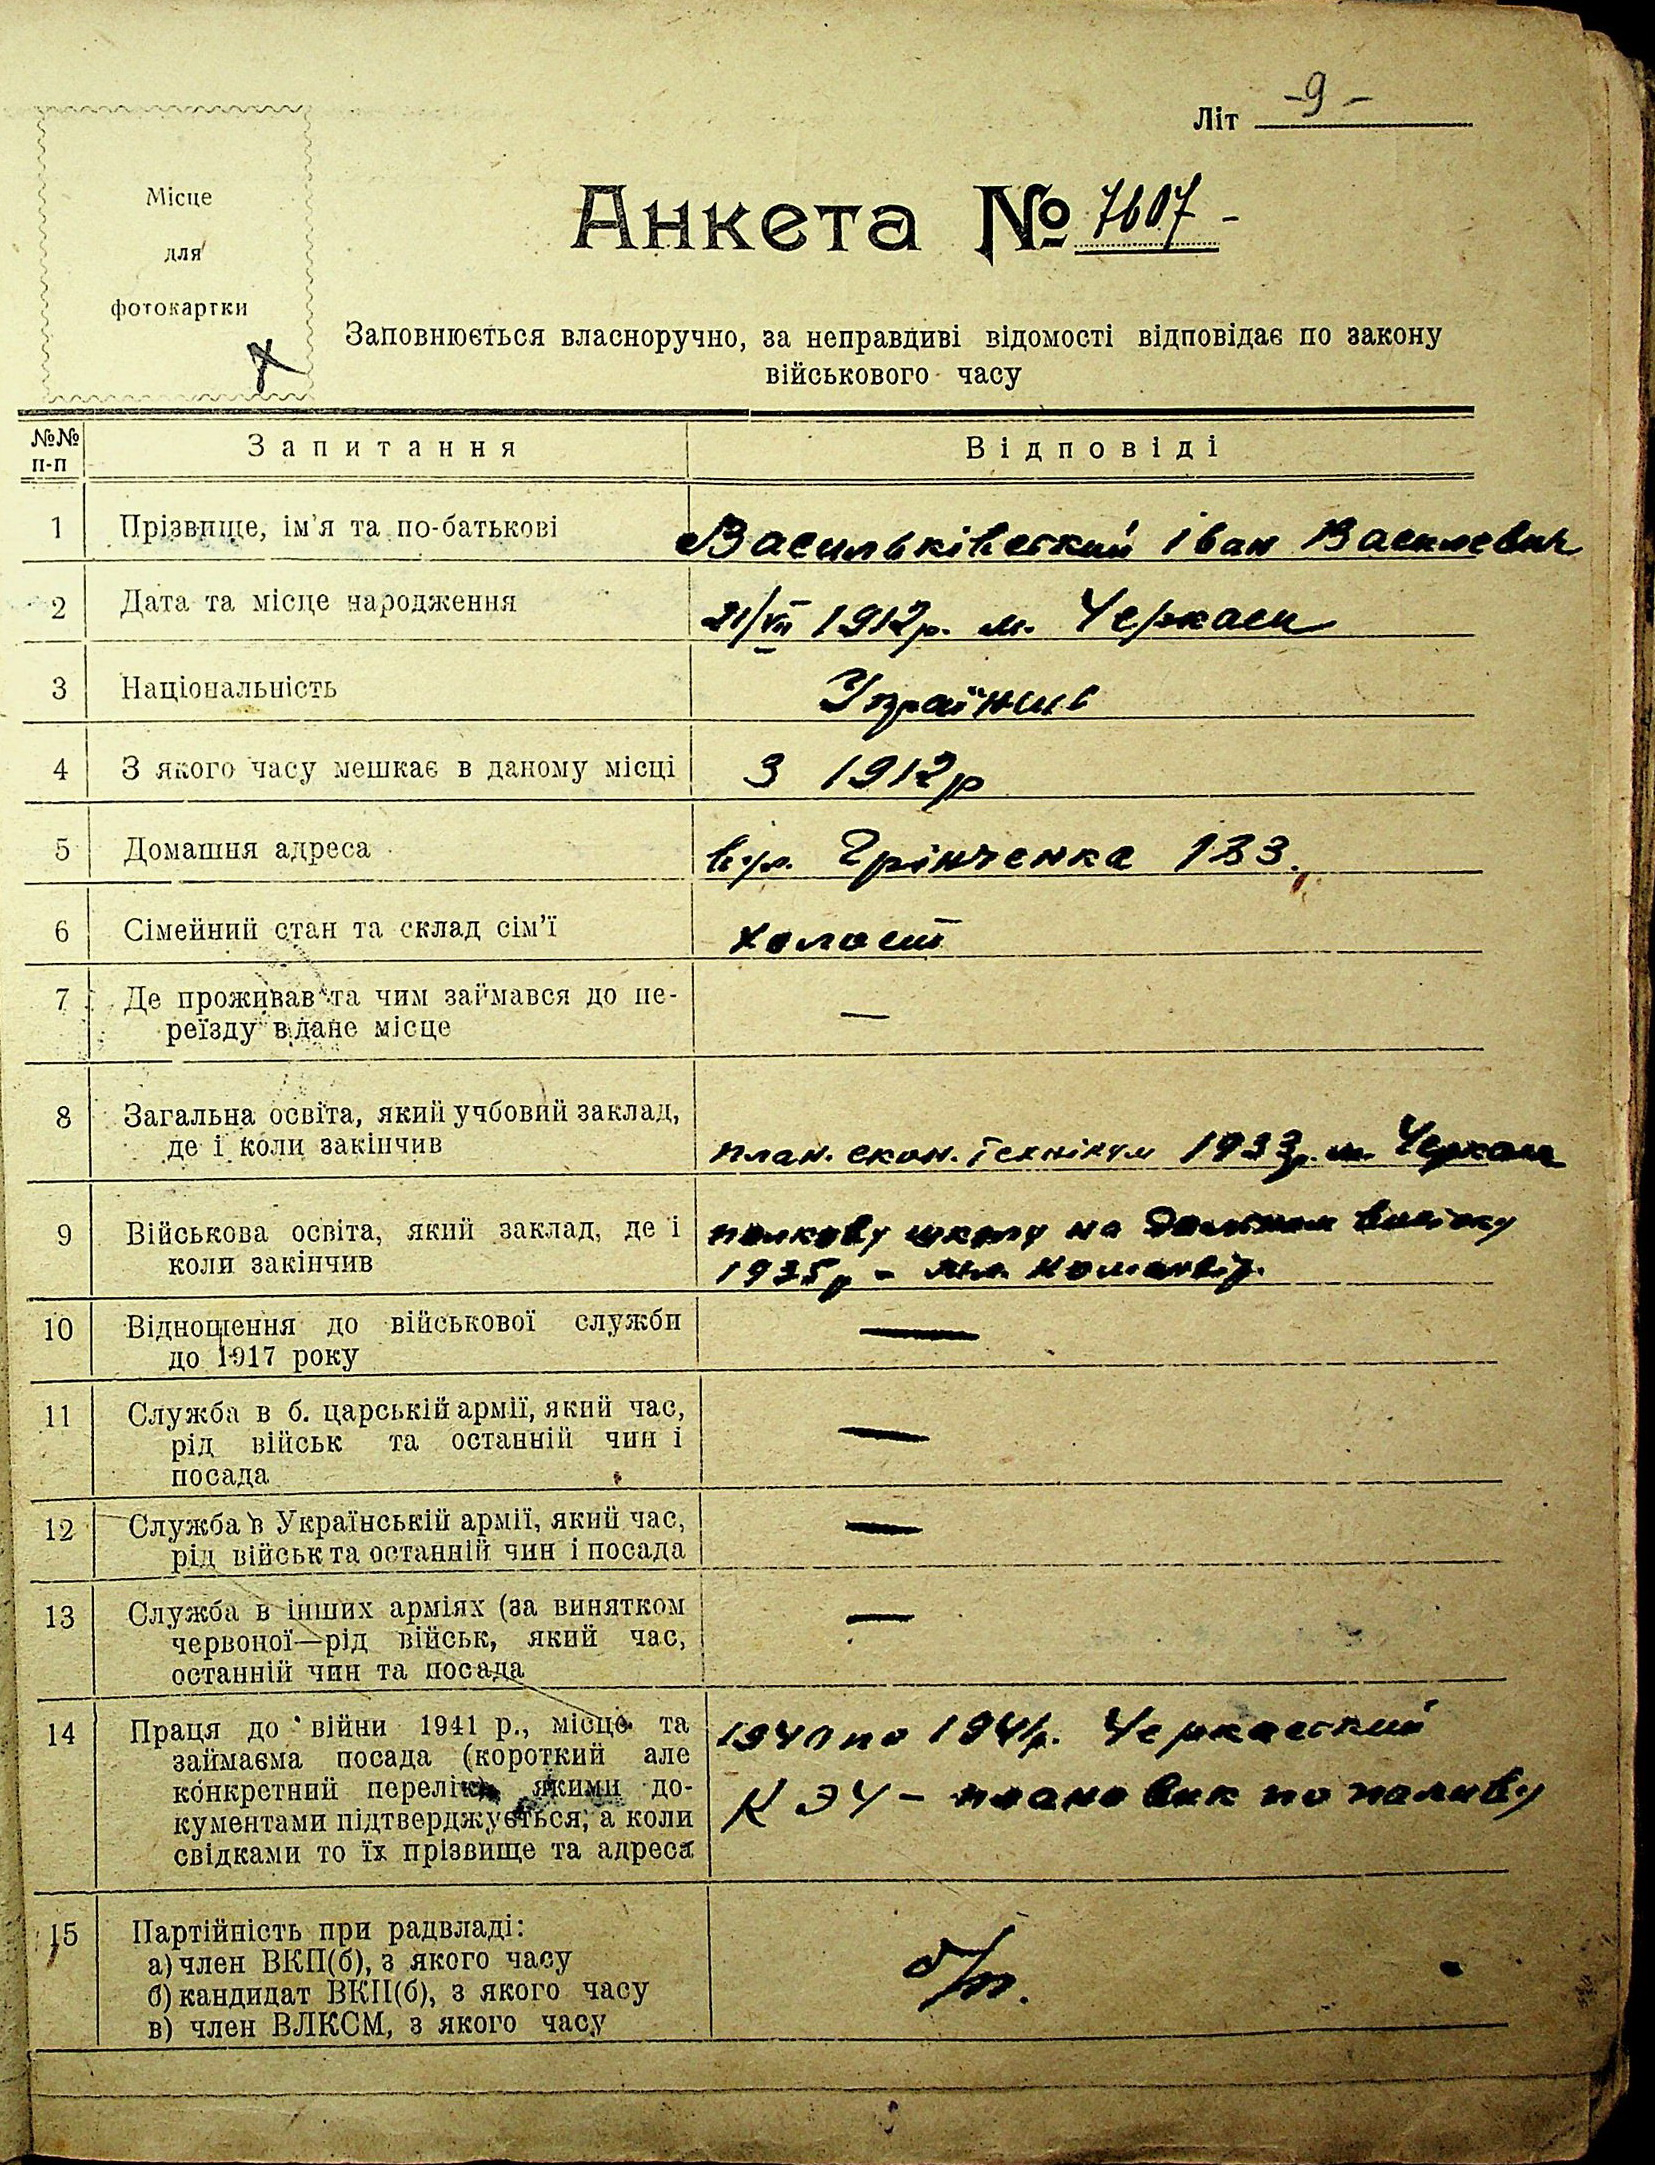 Літ -9-
Місце
для
фотокартки
Анкета № 7607 -
Заповнюється власноручно, за неправдиві відомості відповідає по закону
військового часу
№№ п-п Запитання Відповіді
1 Прізвище, ім'я та по-батькові Васильківський Іван Василевич
2 Дата та місце народження 21/VII 1912р. м. Черкаси
3 Національність Українець
4 З якого часу мешкає в даному місці З 1912р
5 Домашня адреса вул. Грінченка 133.
6 Сімейний стан та склад сім'ї холост
7 Де проживав та чим займався до пе-
реїзду в дане місце —
8 Загальна освіта, який учбовий заклад,
де і коли закінчив план. екон. технікум 1933р. м. Черкаси
9 Військова освіта, який заклад, де і полкову школу на
коли закінчив 1935р - мл. командір.
10 Відношення до військової служби
до 1917 року —
11 Служба в б. царській армії, який час,
рід військ та останній чин і —
посада
12 Служба в Українській армії, який час, —
рід військ та останній чин і посада
13 Служба в інших арміях (за винятком —
червоної—рід військ, який час,
останній чин та посада
14 Праця до війни 1941 р., місце та 1940 по 1941р. Черкаський
займаєма посада (короткий але
конкретний перелік, якими до- КЭЧ - плановик по паливу
кументами підтверджується, а коли
свідками то їх прізвище та адреса
15 Партійність при радвладі:
а) член ВКП(б), з якого часу б/п.
б) кандидат ВКП(б), з якого часу
в) член ВЛКСМ, з якого часу